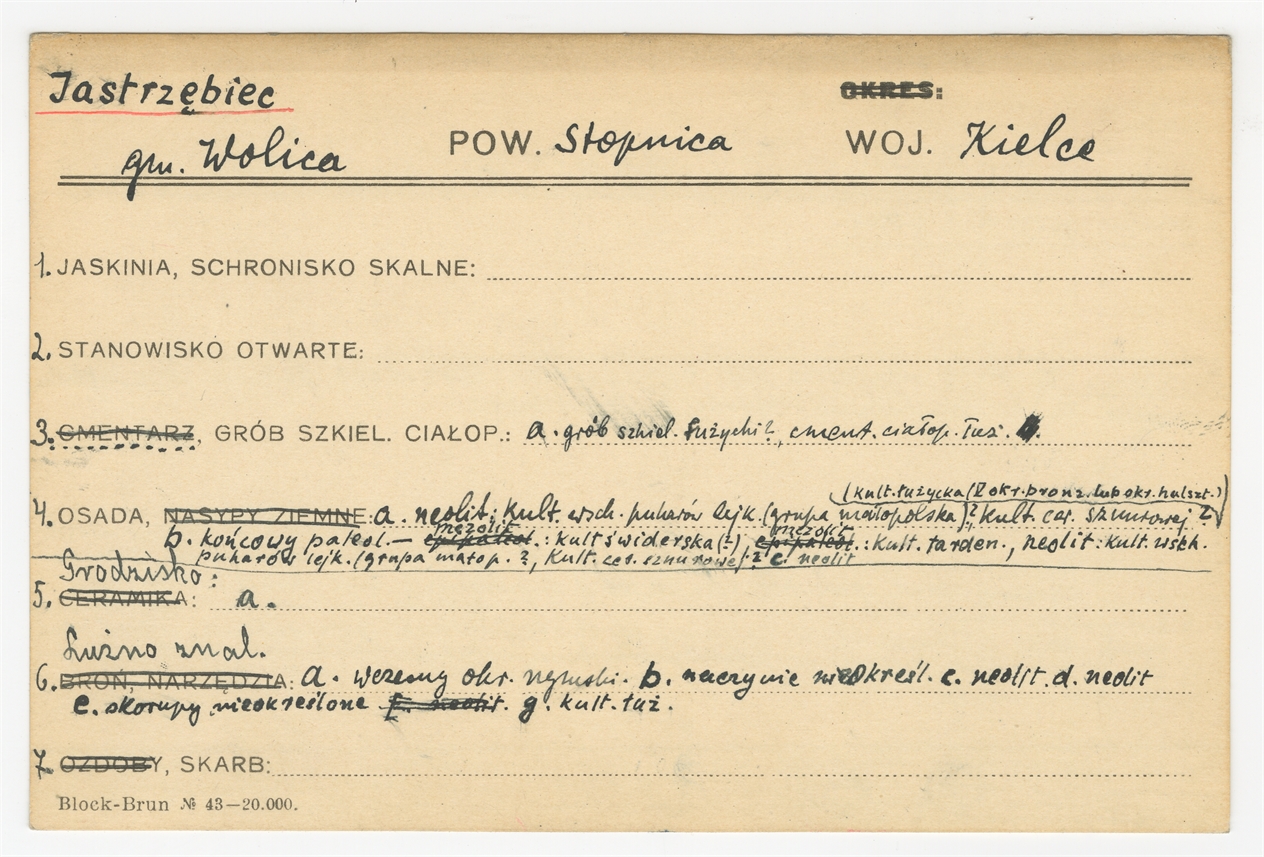 Jastrzębiec
OKRES:
gm. Wolica POW. Stopnica WOJ. Kielce
1. JASKINIA, SCHRONISKO SKALNE:
2. STANOWISKO OTWARTE:
3. CMENTARZ, GRÓB SZKIEL. CIAŁOP.: a. grób szkiel. łużycki?, cment. ciałop. łuż.
(kult. łużycka (V okr. bronz. lub okr. halszt.)
4. OSADA, NASYPY ZIEMNE: a. neolit: kult. wsch. puharów lejk. (grupa małopolska)? kult. cer. sznurowej?
mezolit mezolit
b. końcowy paleol. — epipaleol. : kult świderska (?) epipaleol. : kult. tarden., neolit: kult. wsch.
puharów lejk. (grupa małop. ?, kult. cer. sznurowej)? c. neolit
Grodzisko:
5. CERAMIKA: a.
Luźno znal.
6. BROŃ, NARZĘDZIA: a. wczesny okr. rzymski. b. naczynie nieokreśl. c. neolit. d. neolit
e. skorupy nieokreślone f. neolit. g. kult. łuż.
7. OZDOBY, SKARB:
Block-Brun № 43—20.000.